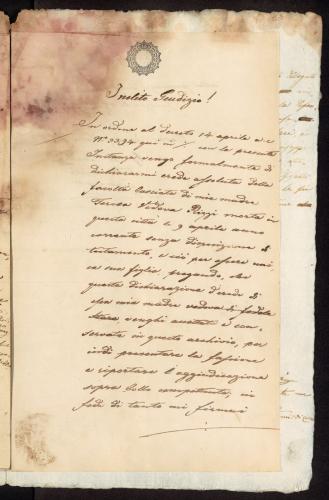 Inclito Giudizio!
In ordine al decreto 14 aprile a. c.
N° 3394 qui in /. con la presente
Instanza vengo formalmente di
dichiararmi erede assoluta della
facoltà lasciata di mia madre
Teresa Vedova Rizzi morta in
questa città i 9 aprile anno
corrente senza disposizione di
testamento, e ciò per essere uni-
ca sua figlia, pregando, che
questa dichiarazione d'erede di
essa mia madre vedova
venghi accettata e con-
servata in questo archivio, per
indi presentare la fassione
e riportare l'aggiudicazione
sopra bollo competente, in
fede di tanto mi firmo